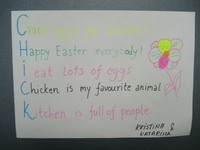 Happy Easter everybody!
I eat lots of eggs
Chicken is my favourite animal
Kitchen is full of people
KRISTINA &
KATARINA